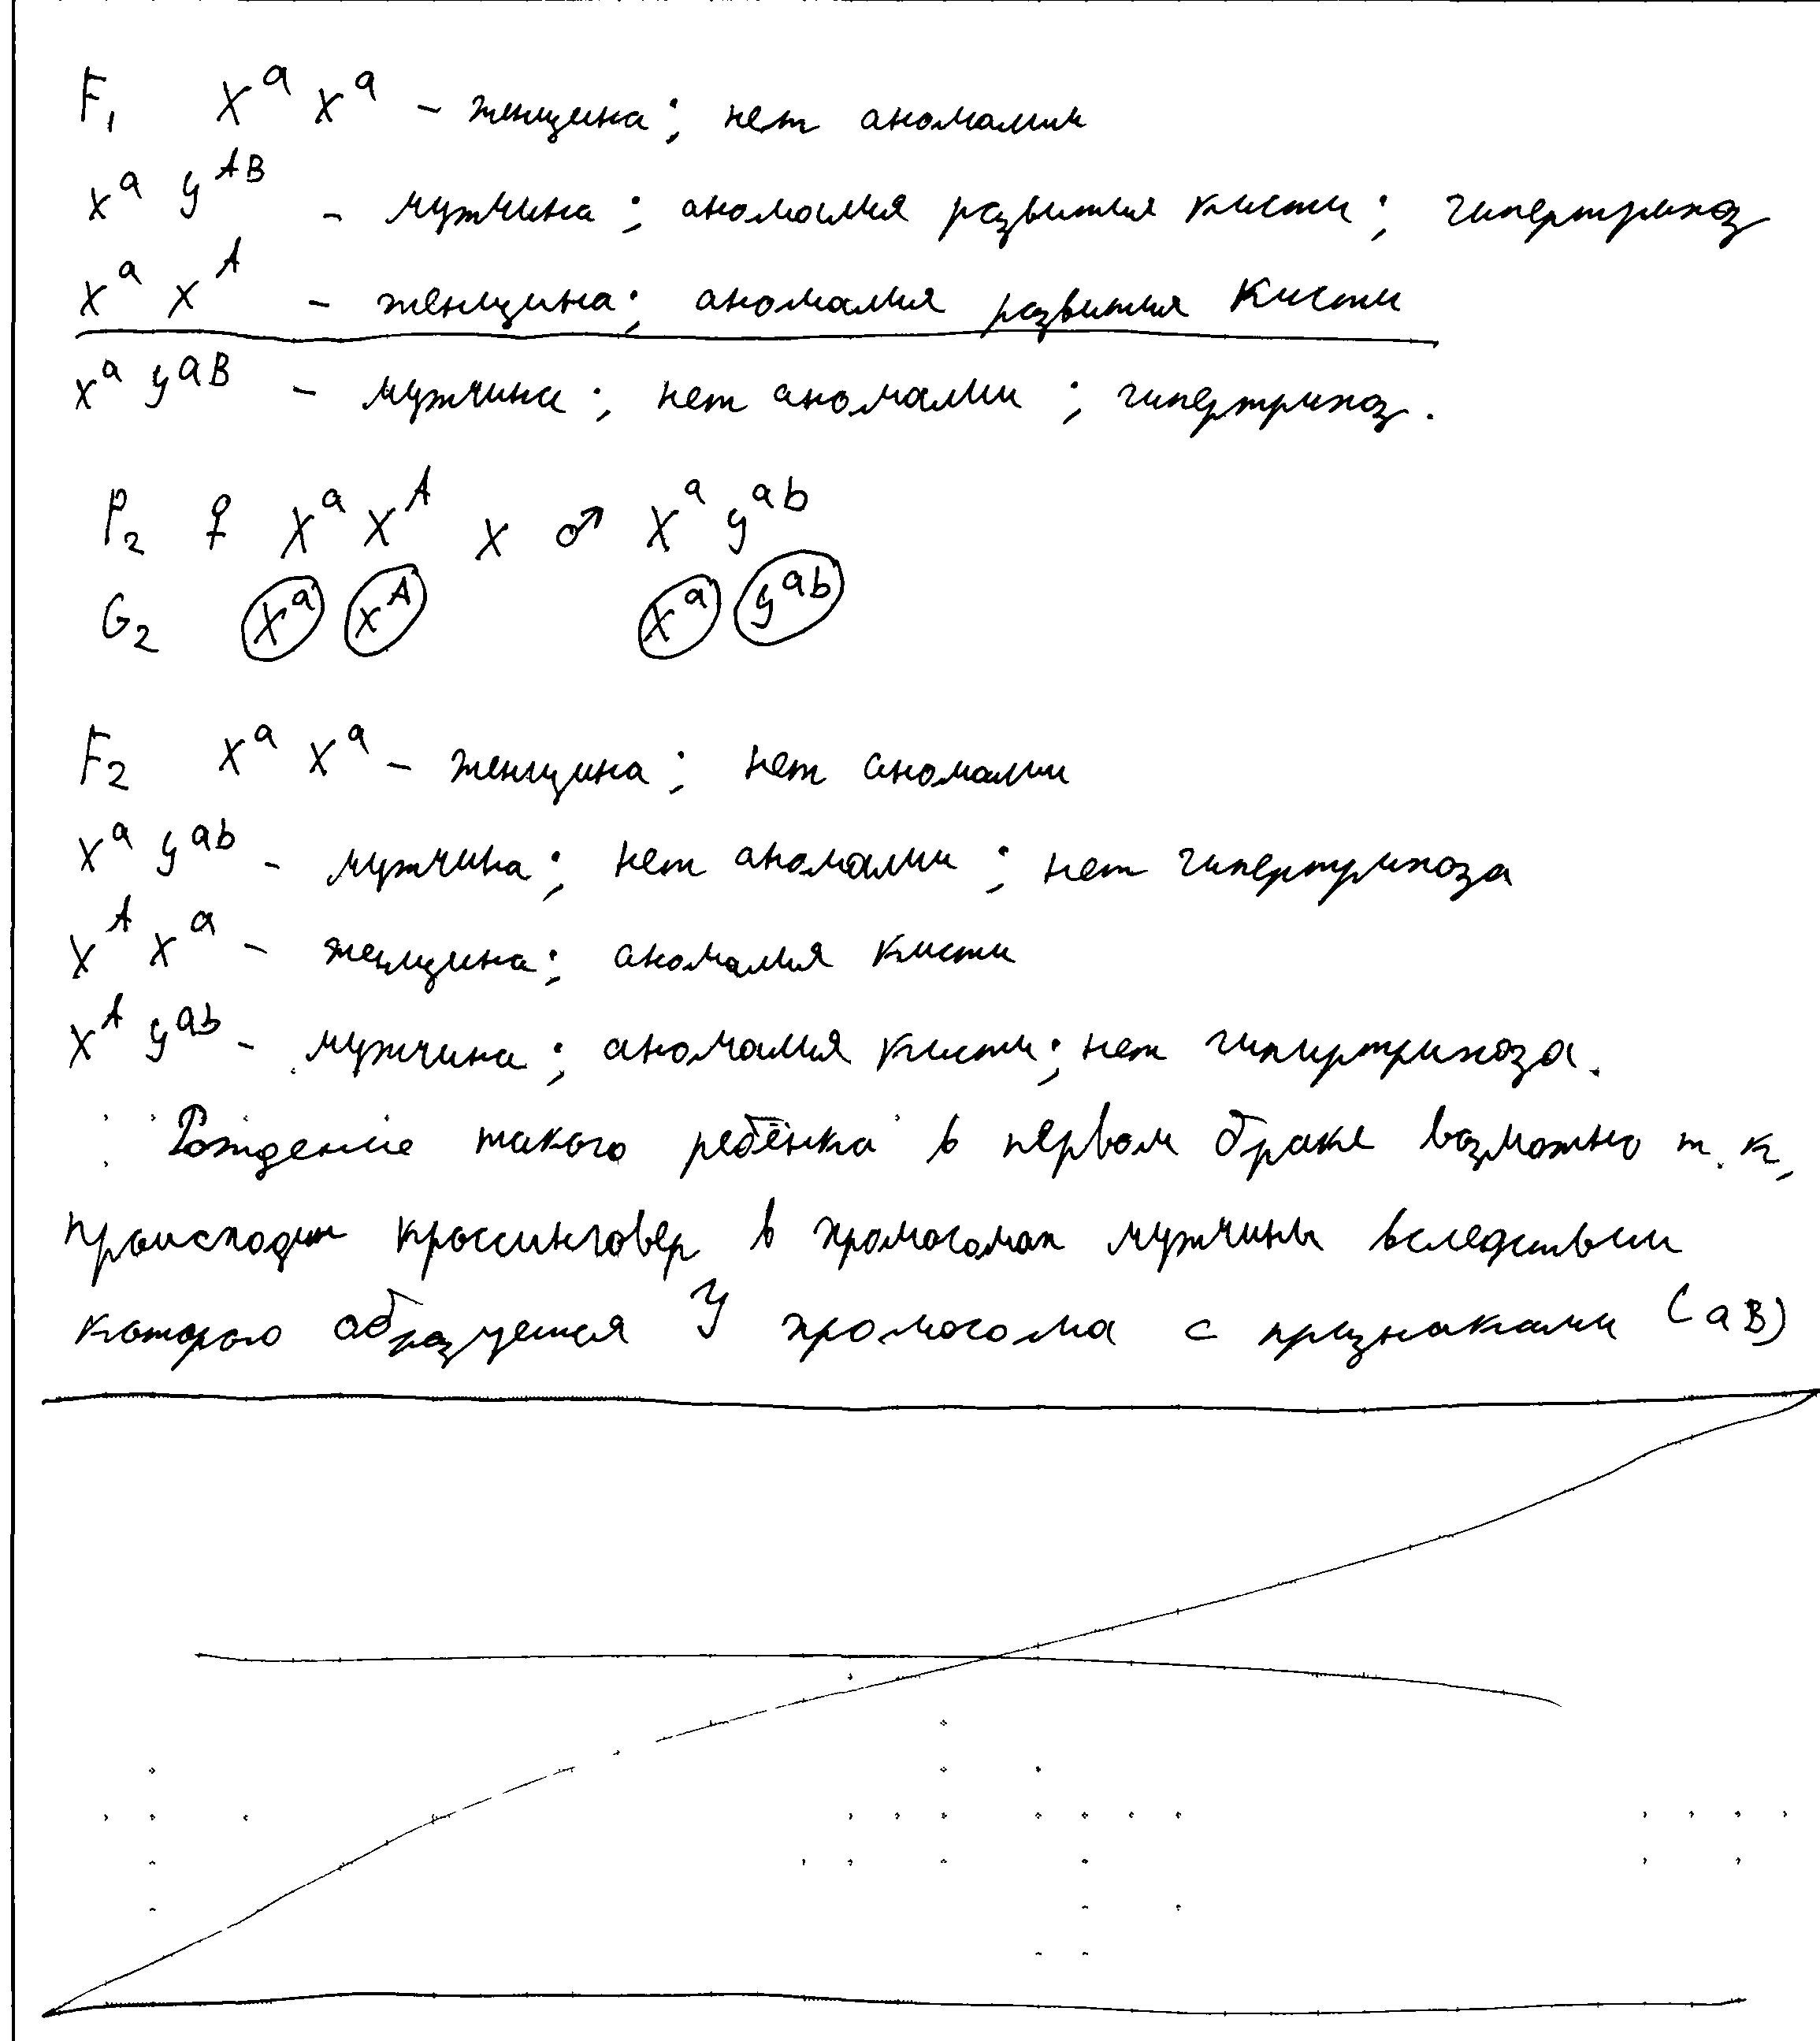 F₁ Xᵃ Xᵃ - женщина; нет аномалии
Xᵃ yᴬᴮ - мужчина; аномалия развития кисти; гипертрихоз
Xᵃ Xᴬ - женщина; аномалия развития кисти
Xᵃ yᵃᴮ - мужчина; нет аномалии; гипертрихоз.
P₂ ♀ Xᵃ Xᴬ x ♂ Xᵃ yᵃᵇ
G₂ Xᵃ Xᴬ Xᵃ yᵃᵇ
F₂ Xᵃ Xᵃ - женщина; нет аномалии
Xᵃ yᵃᵇ - мужчина; нет аномалии; нет гипертрихоза
Xᴬ Xᵃ - женщина; аномалия кисти
Xᴬ yᵃᵇ - мужчина; аномалия кисти; нет гипиртрихоза.
Рождение такого ребёнка в первом браке возможно т.к.
происходит кроссинговер в хромосомах мужчины вследствии
которого образуется У хромосома с признаками (aB)